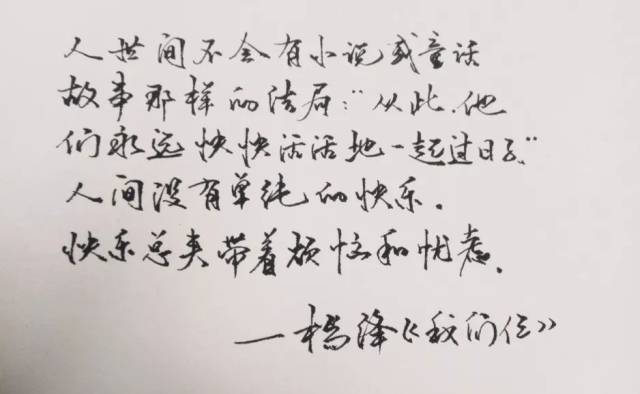 人世间不会有小说或童话
故事那样的结局:“从此,他
们永远快快活活地一起过日子.”
人间没有单纯的快乐.
快乐总夹带着烦恼和忧虑.
一杨绛《我们仨》